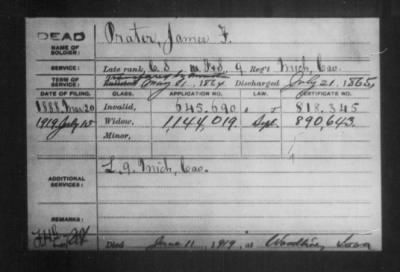 DEAD
NAME OF SOLDIER:
Prater, James F.
SERVICE:
Late rank, C.S. Reg't Mich. Cav.
TERM OF SERVICE:
Enlisted May 1, 1864 Discharged July 21, 1865
DATE OF FILING. CLASS. APPLICATION NO. LAW. CERTIFICATE NO.
1888, Mar 20 Invalid, 645.690 818.345
1919, July 15 Widow, 1,144,019. Sept. 890,643.
Minor,
ADDITIONAL SERVICES:
L. 9. Mich, Cav.
REMARKS:
Died June 11, 1919, at Woodbine, Iowa